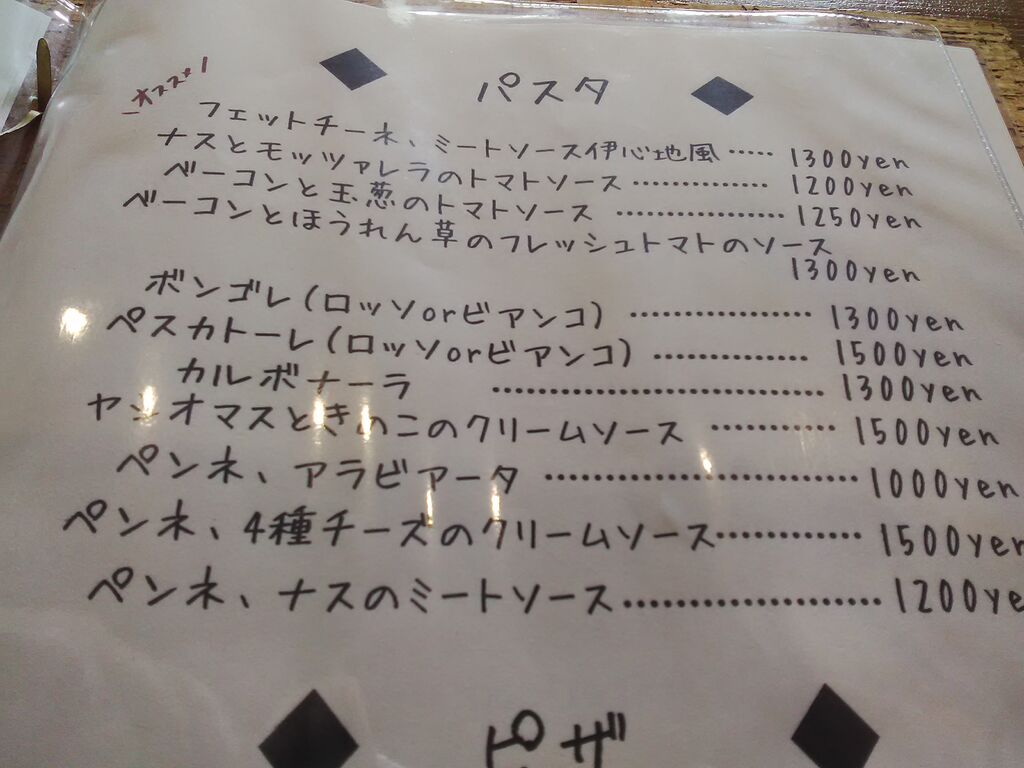 パスタ
オススメ!
フェットチーネ、ミートソース伊心地風・・・・・ 1300yen
ナスとモッツァレラのトマトソース・・・・・・・・・・・・・・ 1200yen
ベーコンと玉葱のトマトソース・・・・・・・・・・・・・・・・・ 1250yen
ベーコンとほうれん草のフレッシュトマトのソース
1300yen
ボンゴレ(ロッソorビアンコ)・・・・・・・・・・・・・・・・・ 1300yen
ペスカトーレ(ロッソorビアンコ)・・・・・・・・・・・・・・ 1500yen
カルボナーラ ・・・・・・・・・・・・・・・・・・・・・・・・・・・・・ 1300yen
ヤシオマスときのこのクリームソース ・・・・・・・・・・・ 1500yen
ペンネ、アラビアータ ・・・・・・・・・・・・・・・・・・・・・・・・・・ 1000yen
ペンネ、4種チーズのクリームソース・・・・・・・・・・・・ 1500yen
ペンネ、ナスのミートソース・・・・・・・・・・・・・・・・・・・・ 1200ye
ピザ